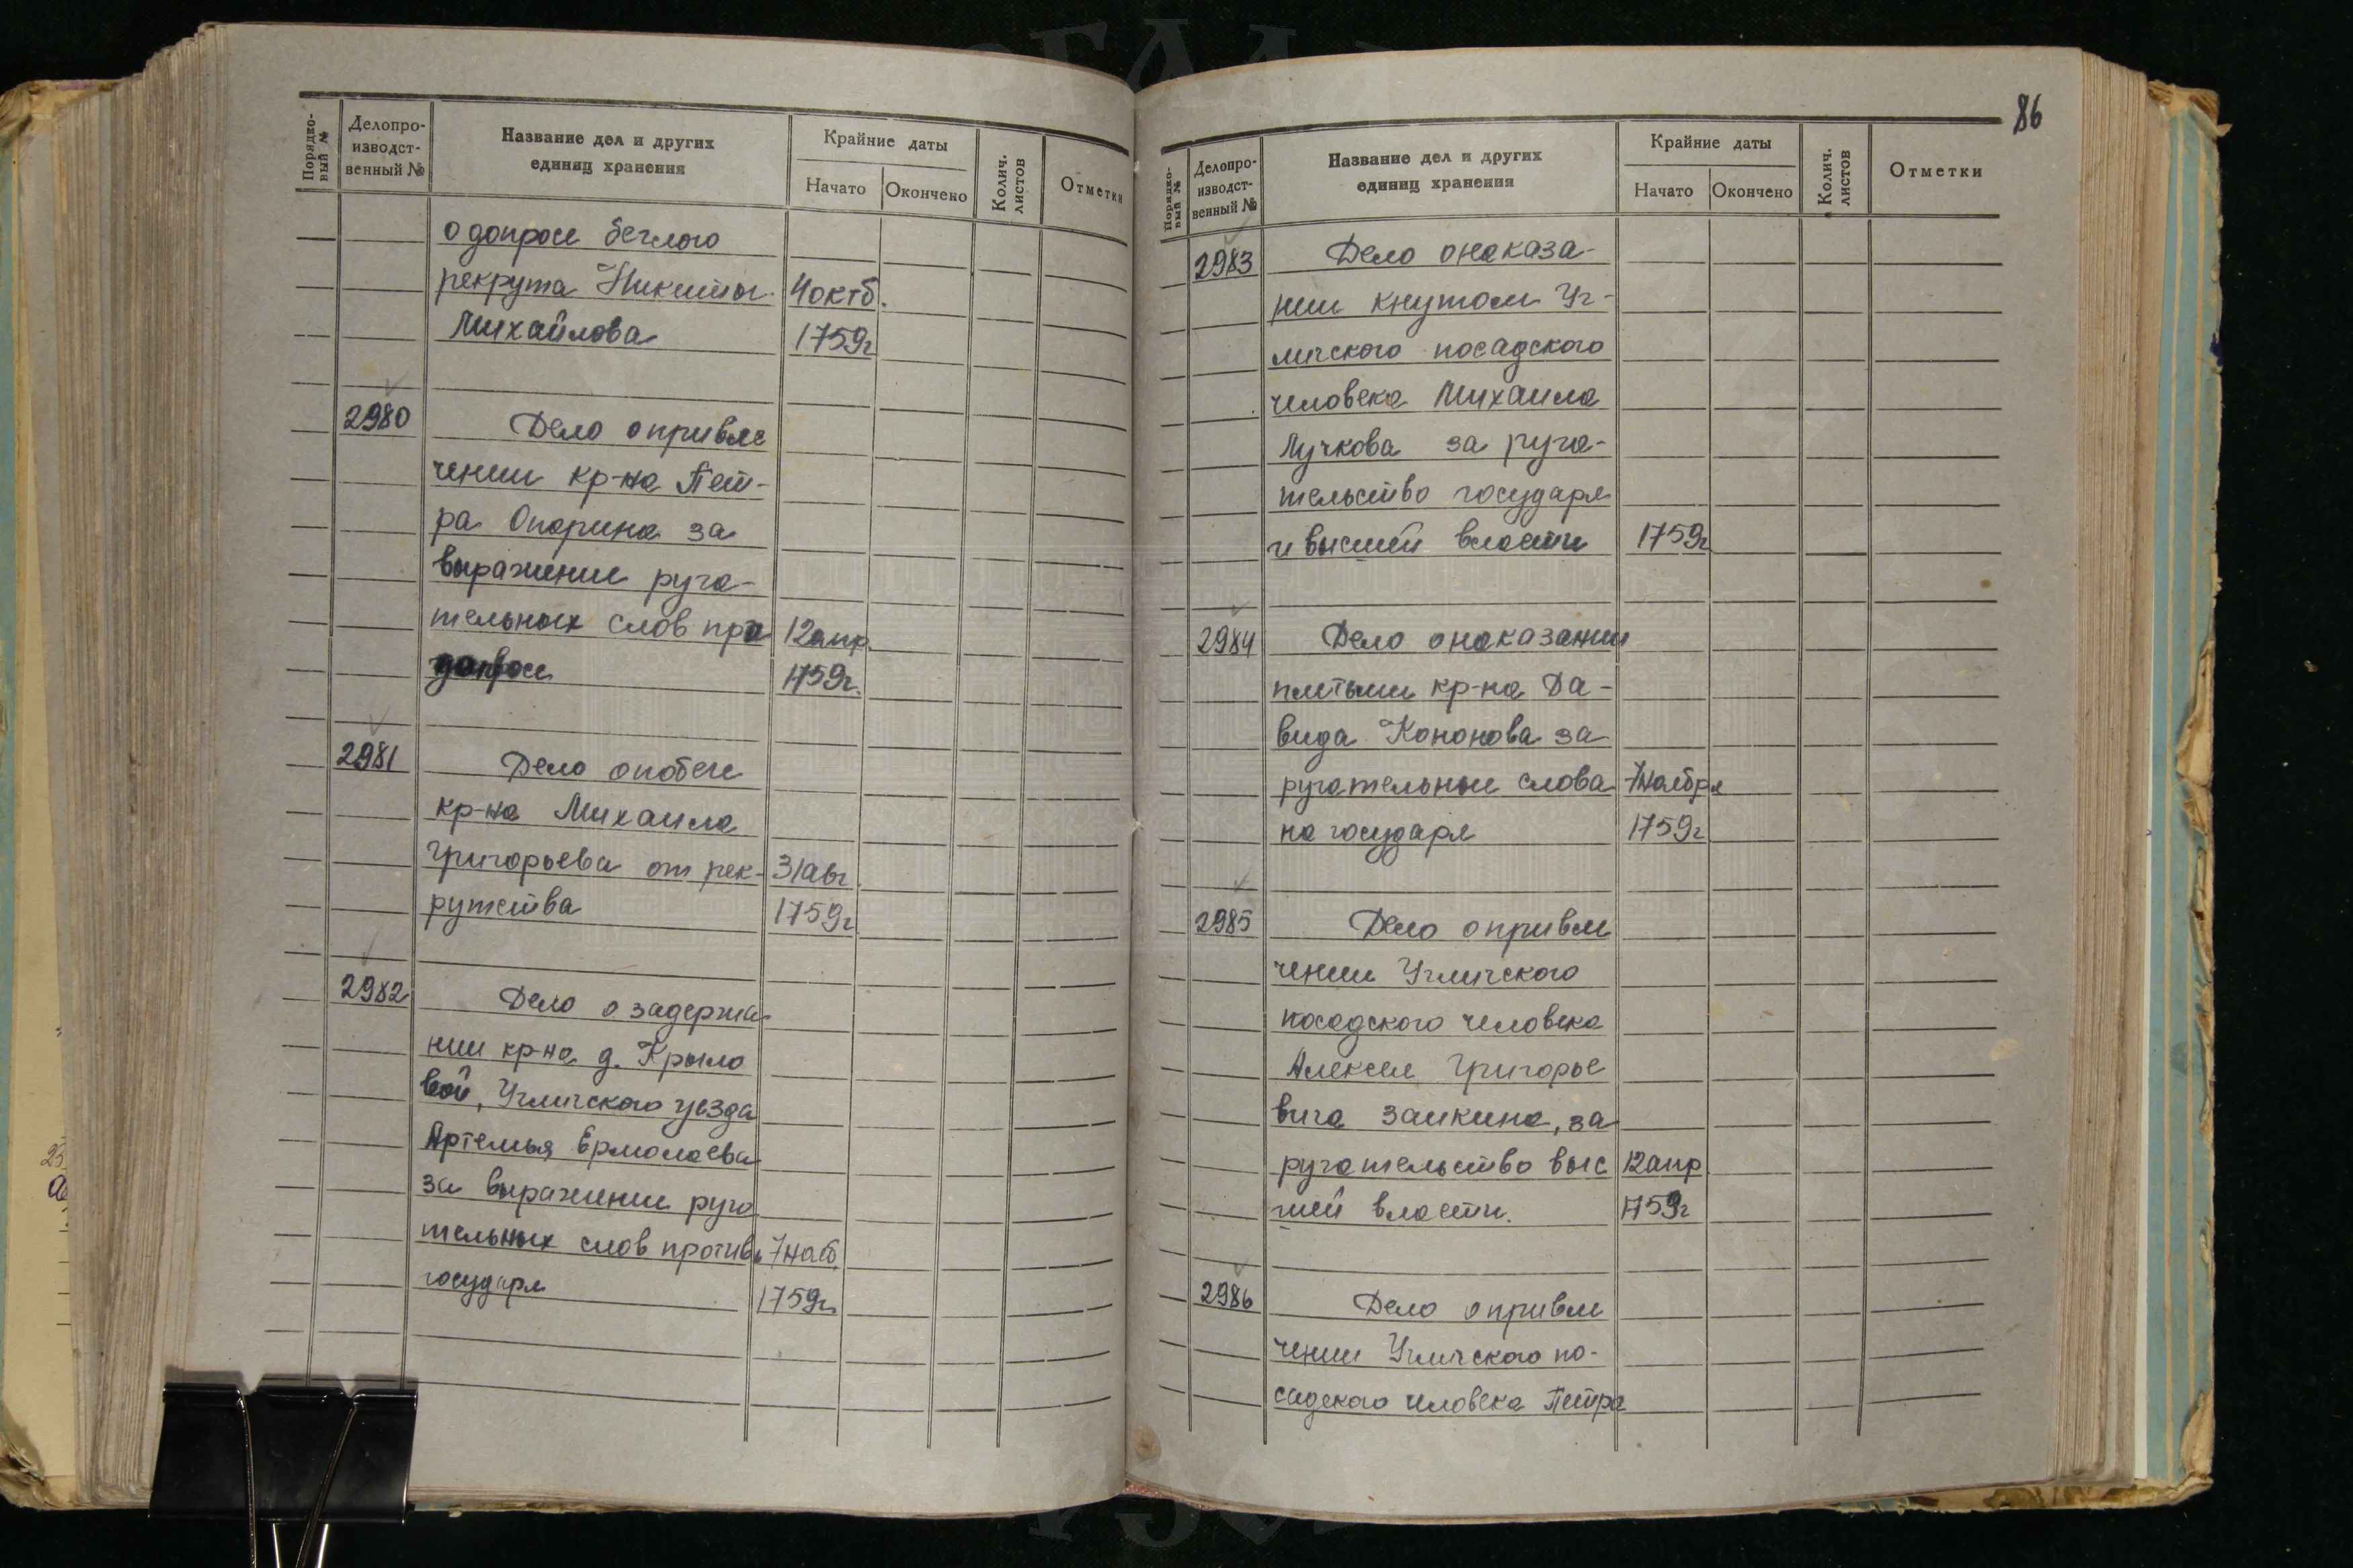 Порядко-
вый №
Делопро-
изводст-
венный №
Название дел и других
единиц хранения
Крайние даты
Начато
Окончено
Колич.
листов
Отметки
о допросе беглого
рекрута Никиты 4 октб.
Михайлова 1759г
2980 Дело о привле
чении кр-на Пет-
ра Опарина за
выражение руга-
тельных слов при 12 апр.
допросе 1759г.
2981 Дело о побеге
кр-на Михаила
Григорьева от рек- 31 авг.
рутства 1759г
2982 Дело о задержа-
нии кр-на д. Крыло
вой, Угличского уезда
Артемья Ермолаева
за выражение руга
тельных слов против 7 нояб.
государя 1759г.
86
Порядко-
вый №
Делопро-
изводст-
венный №
Название дел и других
единиц хранения
Крайние даты
Начато
Окончено
Колич.
листов
Отметки
2983 Дело о наказа-
нии кнутом Уг-
личского посадского
человека Михаила
Лучкова за руга-
тельство государя
и высшей власти 1759г
2984 Дело о наказании
плетьми кр-на Да-
вида Кононова за
ругательные слова 7 ноября
на государя 1759г
2985 Дело о привле
чении Угличского
посадского человека
Алексея Григорье
вича Заикина, за
ругательство выс 12 апр.
шей власти. 1759г
2986 Дело о привле
чении Угличского по-
садского человека Петра